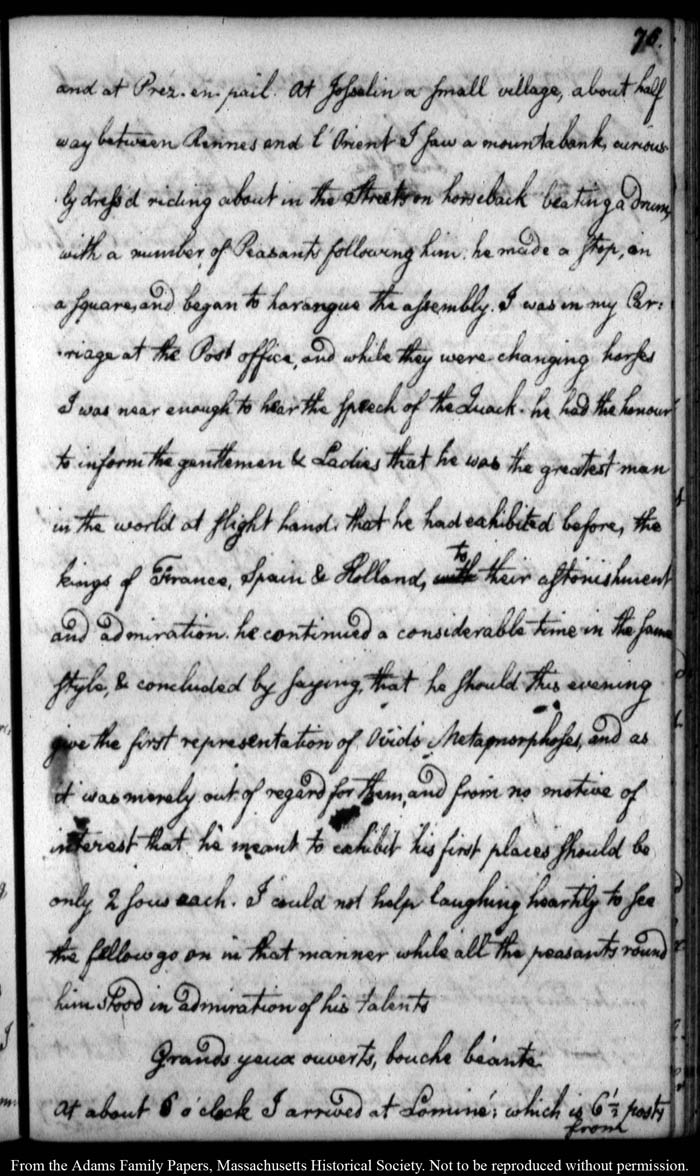 76.
and at Prez-en-pail. At Josselin a small village, about half
way between Rennes and l'Orient I saw a mountabank, curious-
ly dress'd riding about in the Streets on horseback beating a drum,
with a number of Peasants following him. he made a stop, in
a square, and began to harangue the assembly. I was in my Car:
:riage at the Post office, and while they were changing horses
I was near enough to hear the speech of the Quack. he had the honour
to inform the gentlemen & Ladies that he was the greatest man
in the world at slight hand. that he had exhibited before, the
kings of France, Spain & Holland, to their astonishment
and admiration. he continued a considerable time in the same
style, & concluded by saying, that he should this evening
give the first representation of Ovid's Metamorphoses, and as
it was merely out of regard for them, and from no motive of
interest that he meant to exhibit his first places should be
only 2 sous each. I could not help laughing heartily to see
the fellow go on in that manner while all the peasants round
him stood in admiration of his talents
Grands yeux ouverts, bouche béante.
At about 6 o'clock I arrived at Lominé: which is 6 1/2 posts
from
From the Adams Family Papers, Massachusetts Historical Society. Not to be reproduced without permission.